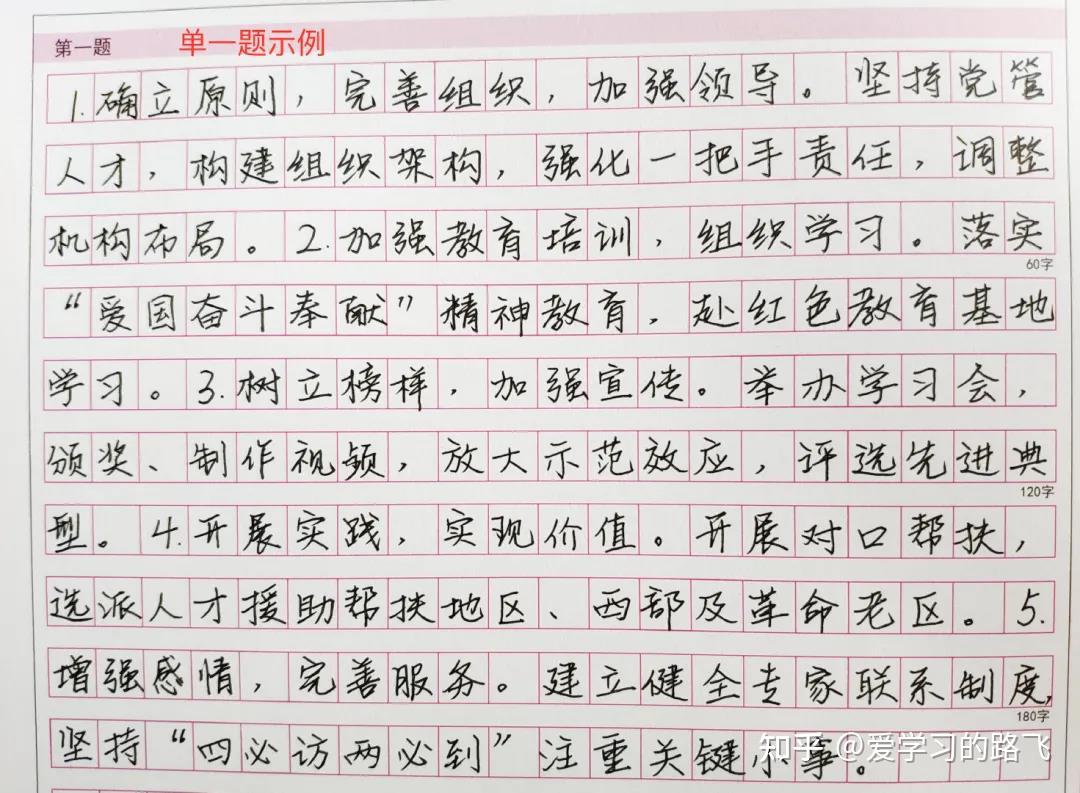 第一题 单一题示例
1.确立原则，完善组织，加强领导。坚持党管
人才，构建组织架构，强化一把手责任，调整
机构布局。2.加强教育培训，组织学习。落实
60字
“爱国奋斗奉献”精神教育，赴红色教育基地
学习。3.树立榜样，加强宣传。举办学习会，
颁奖、制作视频，放大示范效应，评选先进典
120字
型。4.开展实践，实现价值。开展对口帮扶，
选派人才援助帮扶地区、西部及革命老区。5.
增强感情，完善服务。建立健全专家联系制度，
180字
坚持“四必访两必到”注重关键小事。
知乎 @爱学习的路飞